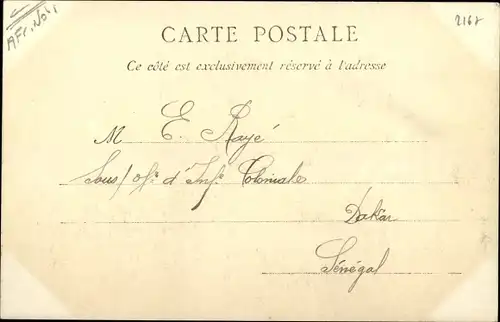 AFr. Nob.
2168
CARTE POSTALE
Ce côté est exclusivement réservé à l'adresse
M E. Rayé
Sous/of. d'Inf. Coloniale
Dakar
Sénégal